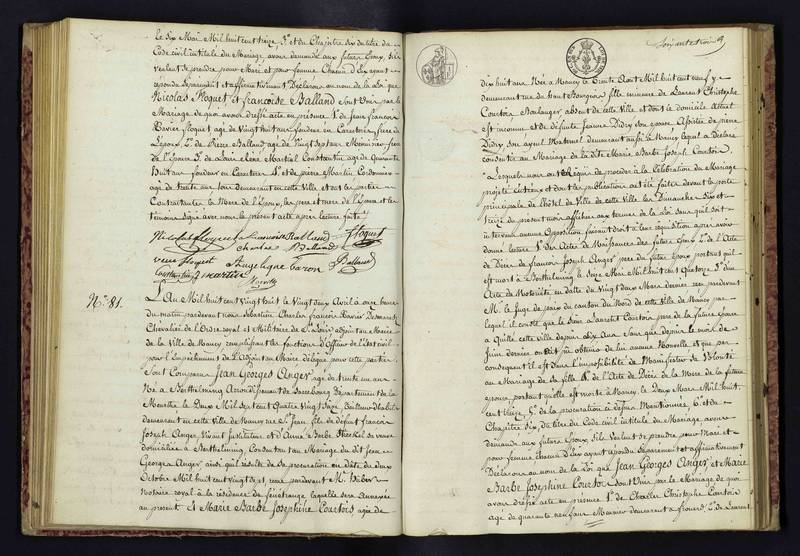 le Six Mai Mil huit cent treize, 5° et du Chapitre Six du titre du
Code civil intitulé du Mariage, avons demandé aux futurs Epoux, S'ils
veulent se prendre pour Mari et pour femme Chacun d'Eux ayant
répondu séparément et affirmativement Déclarons au nom de la Loi que
Nicolas Noquet et françoise Balland Sont Unis par le
Mariage de quoi avons dressé acte en présence 1° de jean françois
Xavier Noquet agé de Vingt huit ans fondeur en Caractère, frere de
L'Epoux, 2° de Balland, agé de Vingt Sept ans Menuisier frere
de l'Epouse 3° de René Martial Constantin agé de Quarante
Huit ans fondeur en Caractère 4° et de pierre Martin Cordonnier
agé de trente six ans demeurant en cette Ville et ont les parties
Contractantes la Mere de l'Epoux, les pere et mere de l'Epouse et les
témoins Signé avec nous le présent acte après Lecture faite
Nicolas françoise Balland
Charles Balland Balland
veuve Angelique Caron
Constantin Martin
N° 81.
L'An Mil huit cent Vingt huit le Vingt deux Avril à onze heures
du matin pardevant nous Sébastien Charles françois Xavier Desmarets
Chevalier de l'Ordre royal et Militaire de St Louis, adjoint au Maire
de la Ville de Nancy remplissant les fonctions d'Officier de l'Etat civil
pour l'Empêchement de l'Adjoint au Maire délégué pour cette partie
Sont Comparus Jean Georges Anger, agé de trente un ans
Né à Berthelming Arrondissement de Sarrebourg Département de la
Meurthe le Deux Mil Sept cent Quatre Vingt Seize, d'habits
demeurant en cette Ville de Nancy rue St Jean, fils de défunt francois
Joseph Anger, Vivant Instituteur et d'Anne Barbe Sa veuve
domiciliée à Berthelming, Consentant au Mariage du dit Jean
Georges Anger, ainsi qu'il résulte de Sa procuration en date du deux
Octobre Mil huit cent Vingt sept et reçue pardevant M.
Notaire royal à la résidence de fénétrange laquelle Sera Annexée
au présent Et Marie Barbe Josephine Courtois agée de
Soixante trois
dix huit ans Née à Nancy le Trente Août Mil huit cent neuf y
demeurant rue du haut Bourgeois fille mineure de Laurent Christophe
Courtois Boulanger absent de cette Ville et dont le domicile Actuel
Est inconnu et de défunte Jeanne Didry Son épouse Assistée de pierre
Didry Son ayeul Maternel demeurant aussi à Nancy lequel a Déclaré
consentir au Mariage de la dite Marie Barbe Joseph Courtois.
Lesquels nous ont Requis de procéder à la Célébration du Mariage
projeté entr'eux et dont les publications ont été faites devant la porte
principale de l'hôtel de Ville de cette Ville les Dimanches Six et
treize du présent mois affichées aux termes de la Loi Sans qu'il Soit
intervenu aucune Opposition faisant droit à leur réquisition après avoir
donné lecture 1° des Actes de Naissances des futurs Epoux 2° de l'Acte
de Décès de françois Joseph Anger pere du futur Epoux portant qu'il
est mort à Berthelming le Seize Mai Mil huit cent Quatorze 3° d'un
Acte de Notoriété en date du Vingt deux Mars dernier reçu pardevant
M. le Juge de paix du canton du Nord de cette Ville de Nancy par
lequel il conste que le Sieur Laurent Courtois pere de la future Epouse
a Quitté cette Ville depuis dix Ans Sans que depuis le mois de
Juin dernier on ait pu obtenir de lui aucune Nouvelle et que par
conséquent il est dans l'impossibilité de Manifester Sa Volonté
au Mariage de Sa fille 4° de l'Acte de Décès de la Mere de la future
épouse, portant qu'elle est morte à Nancy le Deux Mars Mil huit
cent treize, 5° de la procuration ci dessus Mentionnée 6° et du
Chapitre Six du titre du Code civil intitulé du Mariage avons
demandé aux futurs Epoux S'ils Veulent Se prendre pour Mari et
pour femme chacun d'Eux ayant répondu Séparément et affirmativement
Déclarons au nom de la Loi que Jean Georges Anger et Marie
Barbe Josephine Courtois Sont Unis par le Mariage de quoi
avons dressé acte en présence 1° de Charles Christophe Courtois
agé de quarante neuf ans Meunier demeurant à frouard 2° de Laurent